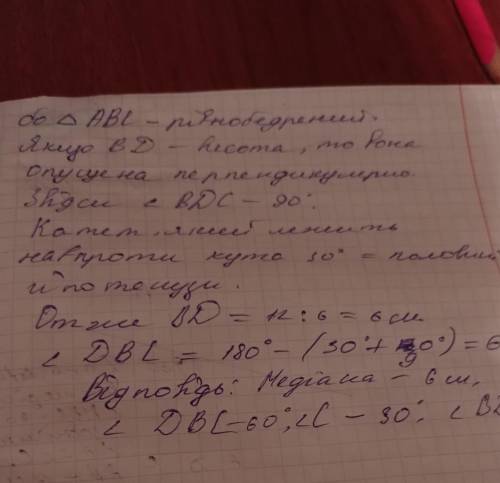 бо △ ABC – рівнобедрений.
Якщо BD – висота, то вона
опущена перпендикулярно.
Звідси ∠ BDC – 90°.
Катет, який лежить
навпроти кута 30° = половині
гіпотенузи.
Отже BD = 12 : 6 = 6 см.
∠ DBC = 180° – (30° + 90°) = 6
Відповідь: Медіана – 6 см,
∠ DBC – 60°, ∠C – 30°, ∠ BD